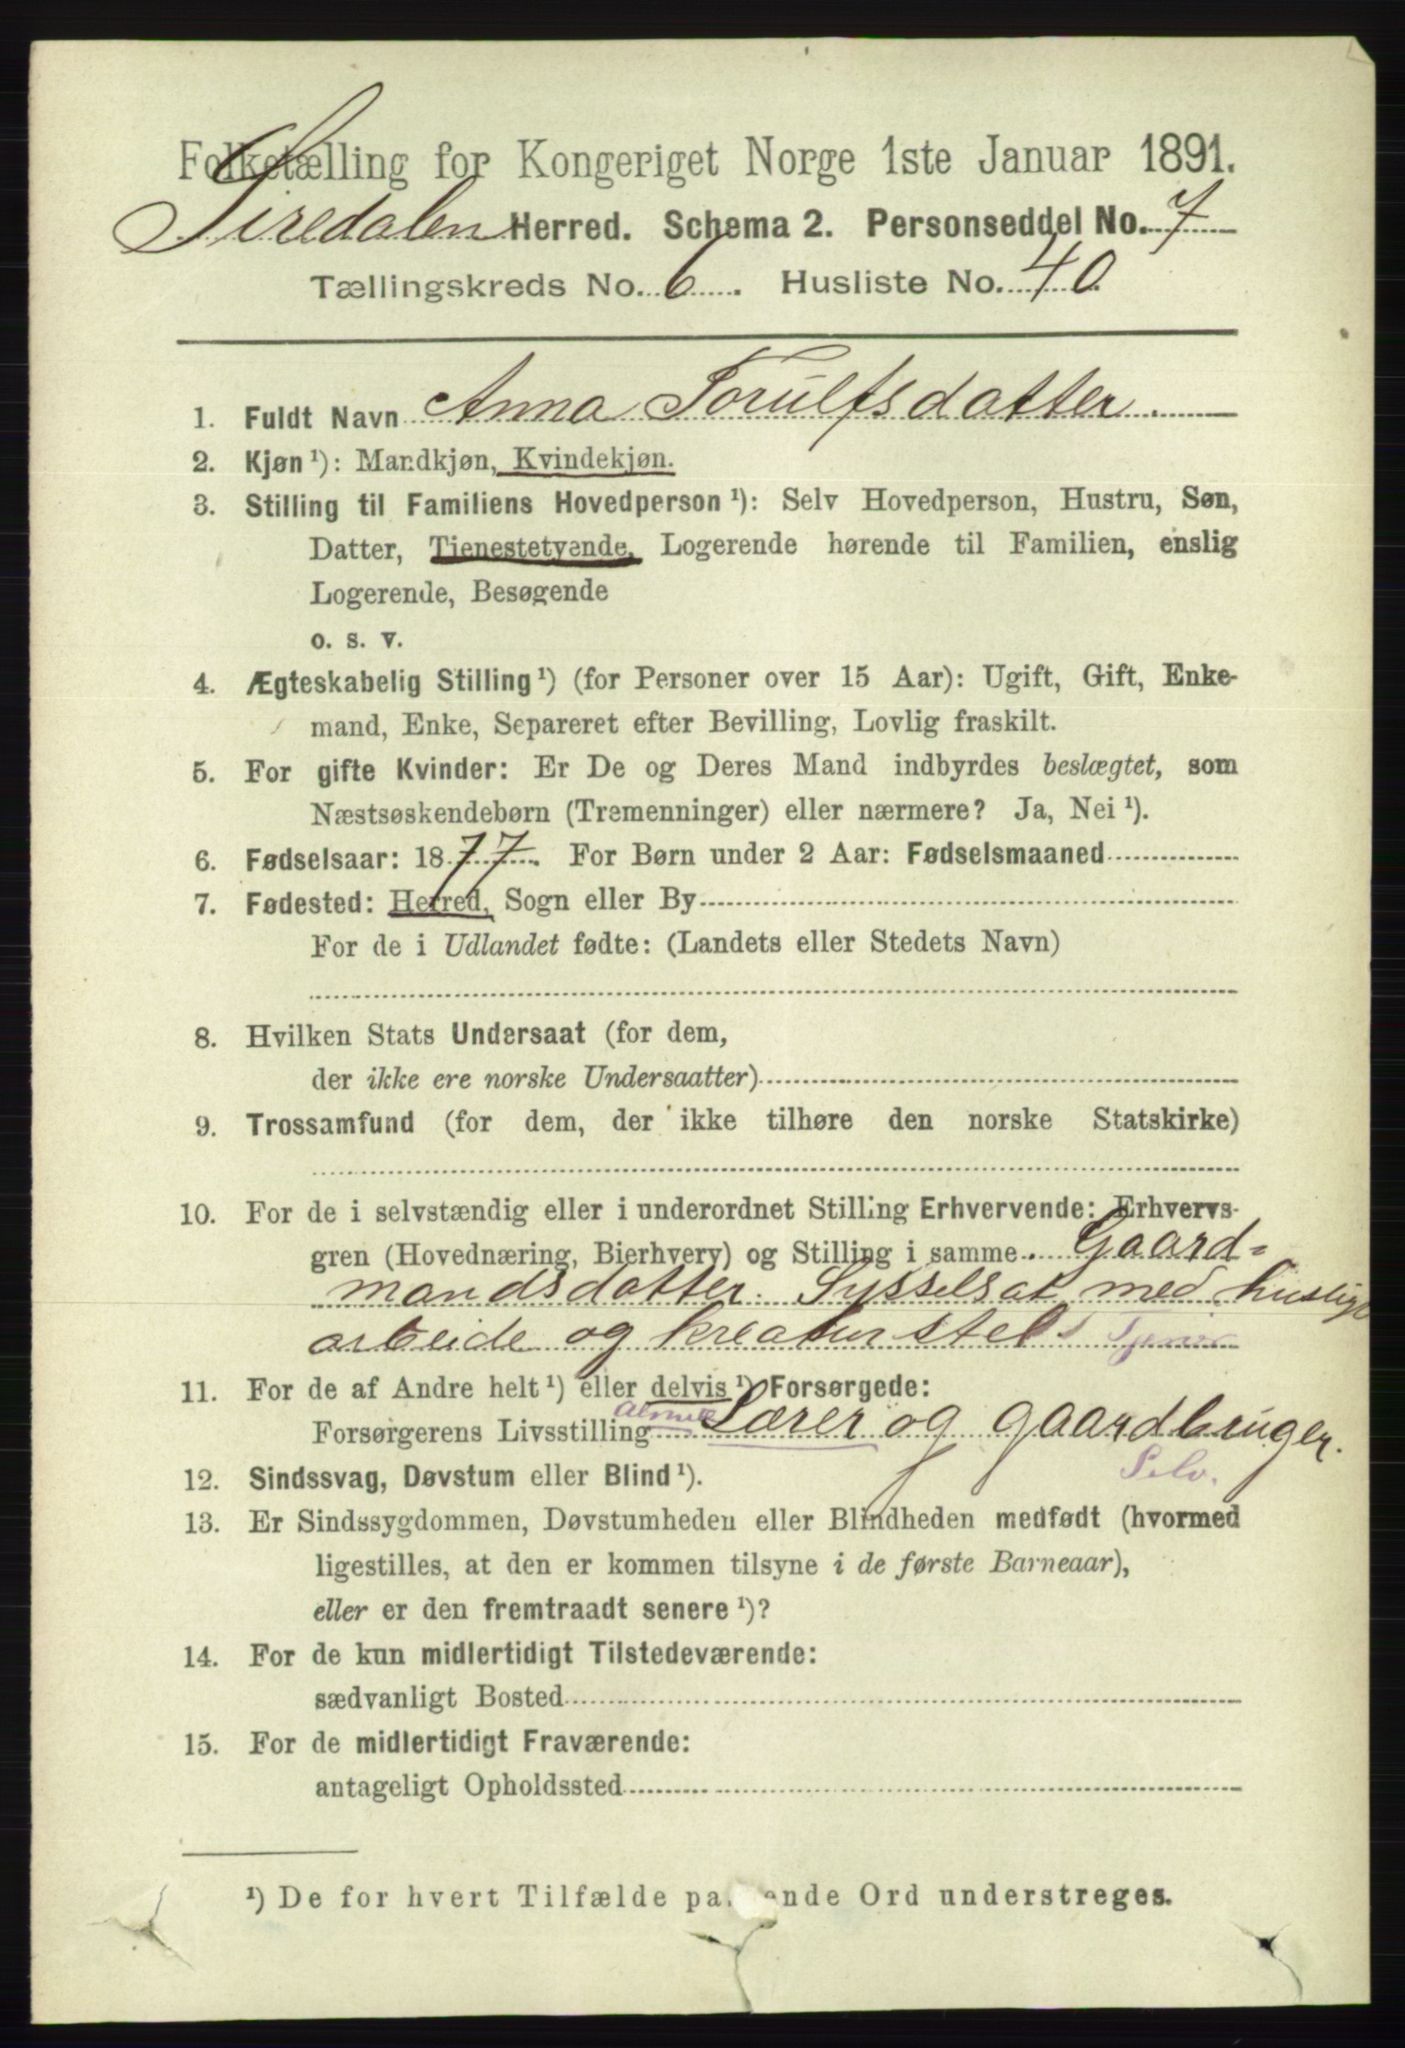 Folketælling for Kongeriget Norge 1ste Januar 1891.
Siredalen Herred. Schema 2. Personseddel No. 7
Tællingskreds No. 6. Husliste No. 40
1. Fuldt Navn Anna Torulfsdatter.
2. Kjøn ¹): Mandkjøn, Kvindekjøn.
3. Stilling til Familiens Hovedperson ¹): Selv Hovedperson, Hustru, Søn,
Datter, Tjenestetyende, Logerende hørende til Familien, enslig
Logerende, Besøgende
o. s. v.
4. Ægteskabelig Stilling ¹) (for Personer over 15 Aar): Ugift, Gift, Enke-
mand, Enke, Separeret efter Bevilling, Lovlig fraskilt.
5. For gifte Kvinder: Er De og Deres Mand indbyrdes beslægtet, som
Næstsøskendebørn (Tremenninger) eller nærmere? Ja, Nei ¹).
6. Fødselsaar: 1877. For Børn under 2 Aar: Fødselsmaaned
7. Fødested: Herred, Sogn eller By
For de i Udlandet fødte: (Landets eller Stedets Navn)
8. Hvilken Stats Undersaat (for dem,
der ikke ere norske Undersaatter)
9. Trossamfund (for dem, der ikke tilhøre den norske Statskirke)
10. For de i selvstændig eller i underordnet Stilling Erhvervende: Erhvervs-
gren (Hovednæring, Bierhverv) og Stilling i samme. Gaard-
mandsdatter. Sysselsat med husligt
arbeide og kreaturstel
11. For de af Andre helt ¹) eller delvis ¹) Forsørgede:
Forsørgerens Livsstilling Lærer og gaardbruger.
Selv.
12. Sindssvag, Døvstum eller Blind ¹).
13. Er Sindssygdommen, Døvstumheden eller Blindheden medfødt (hvormed
ligestilles, at den er kommen tilsyne i de første Barneaar),
eller er den fremtraadt senere ¹)?
14. For de kun midlertidigt Tilstedeværende:
sædvanligt Bosted
15. For de midlertidigt Fraværende:
antageligt Opholdssted
¹) De for hvert Tilfælde pa ende Ord understreges.